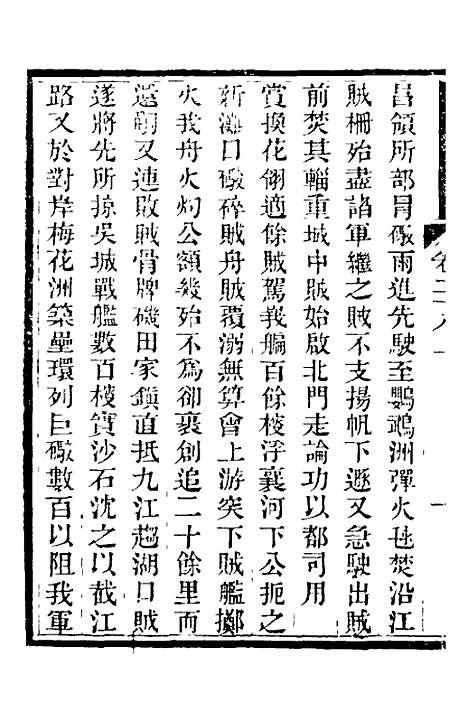 昌領所部冒礮雨進先駛至鸚鵡洲彈火毬焚沿江
賊柵殆盡諸軍繼之賊不支揚帆下遯又急駛出賊
前焚其輜重城中賊始啟北門走論功以都司用
賞換花翎適餘賊駕義艑百餘梭浮襄河下公扼之
新灘口礮碎賊舟賊覆溺無算會上游突下賊艦擲
火我舟火灼公額幾殆不為卻裹創追二十餘里而
還嗣又連敗賊骨牌磯田家鎮直抵九江趨湖口賊
遂將先所掠吳城戰艦數百梭實沙石沈之以截江
路又於對岸梅花洲築壘環列巨礮數百以阻我軍
卷二八